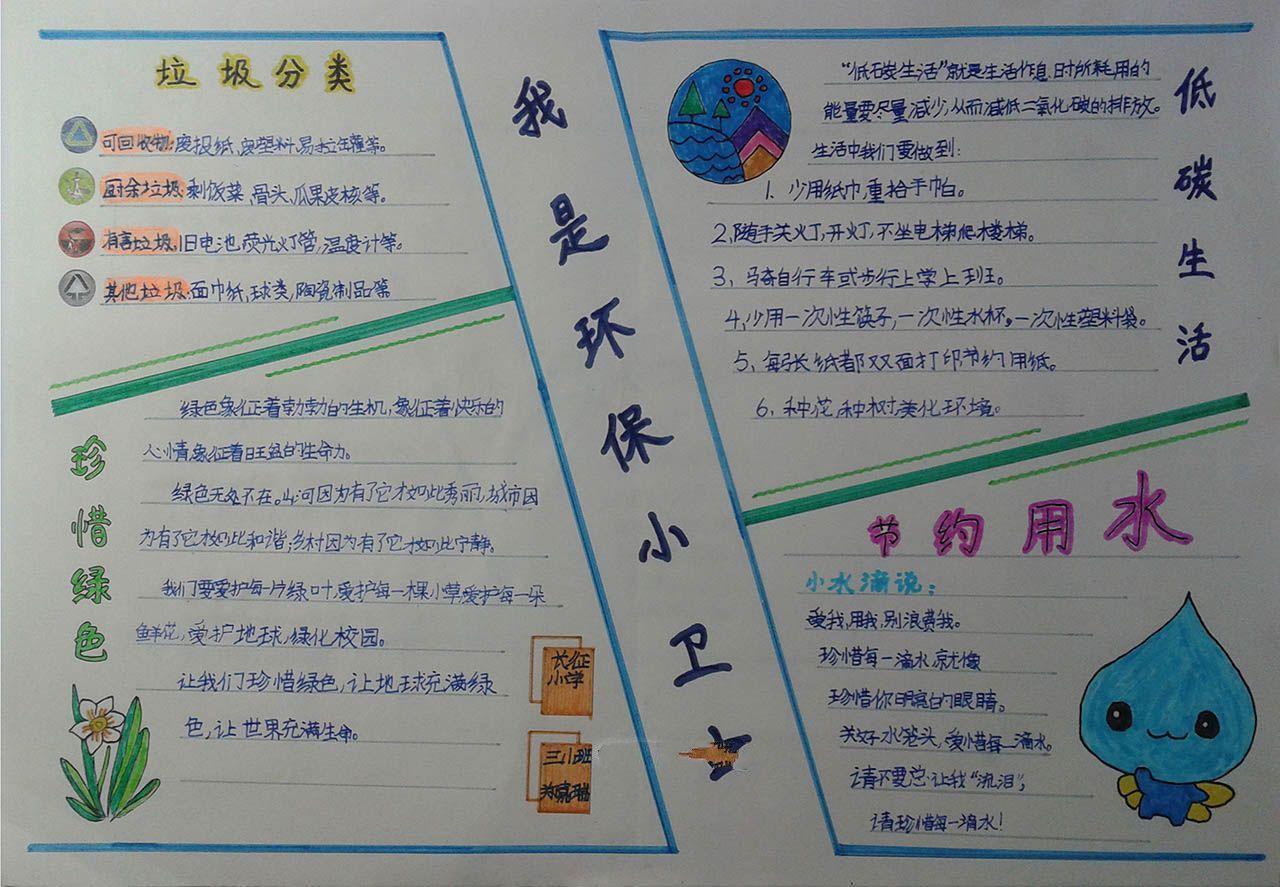 垃圾分类
可回收物:废报纸,废塑料,易拉罐等。
厨余垃圾:剩饭菜,骨头,瓜果皮核等。
有害垃圾:旧电池,荧光灯管,温度计等。
其他垃圾:面巾纸,球类,陶瓷制品等
珍惜绿色
绿色象征着勃勃的生机,象征着快乐的
心情,象征着旺盛的生命力。
绿色无处不在。山河因为有了它才如此秀丽,城市因
为有了它才如此和谐;乡村因为有了它才如此宁静。
我们要爱护每一片绿叶,爱护每一棵小草,爱护每一朵
鲜花,爱护地球,绿化校园。
让我们珍惜绿色,让地球充满绿
色,让世界充满生命。
长征
小学
我是环保小卫士
低碳生活
“低碳生活”就是生活作息时所耗用的
能量要尽量减少,从而减低二氧化碳的排放。
生活中我们要做到:
1、少用纸巾,重拾手帕。
2,随手关灯,开灯,不坐电梯爬楼梯。
3、骑自行车或步行上学上班。
4,少用一次性筷子,一次性水杯,一次性塑料袋。
5、每张纸都双面打印节约用纸。
6、种花,种树,美化环境。
节约用水
小水滴说:
爱我,用我,别浪费我。
珍惜每一滴水,就像
珍惜你明亮的眼睛。
关好水笼头,爱惜每一滴水。
请不要总让我“流泪”,
请珍惜每一滴水!